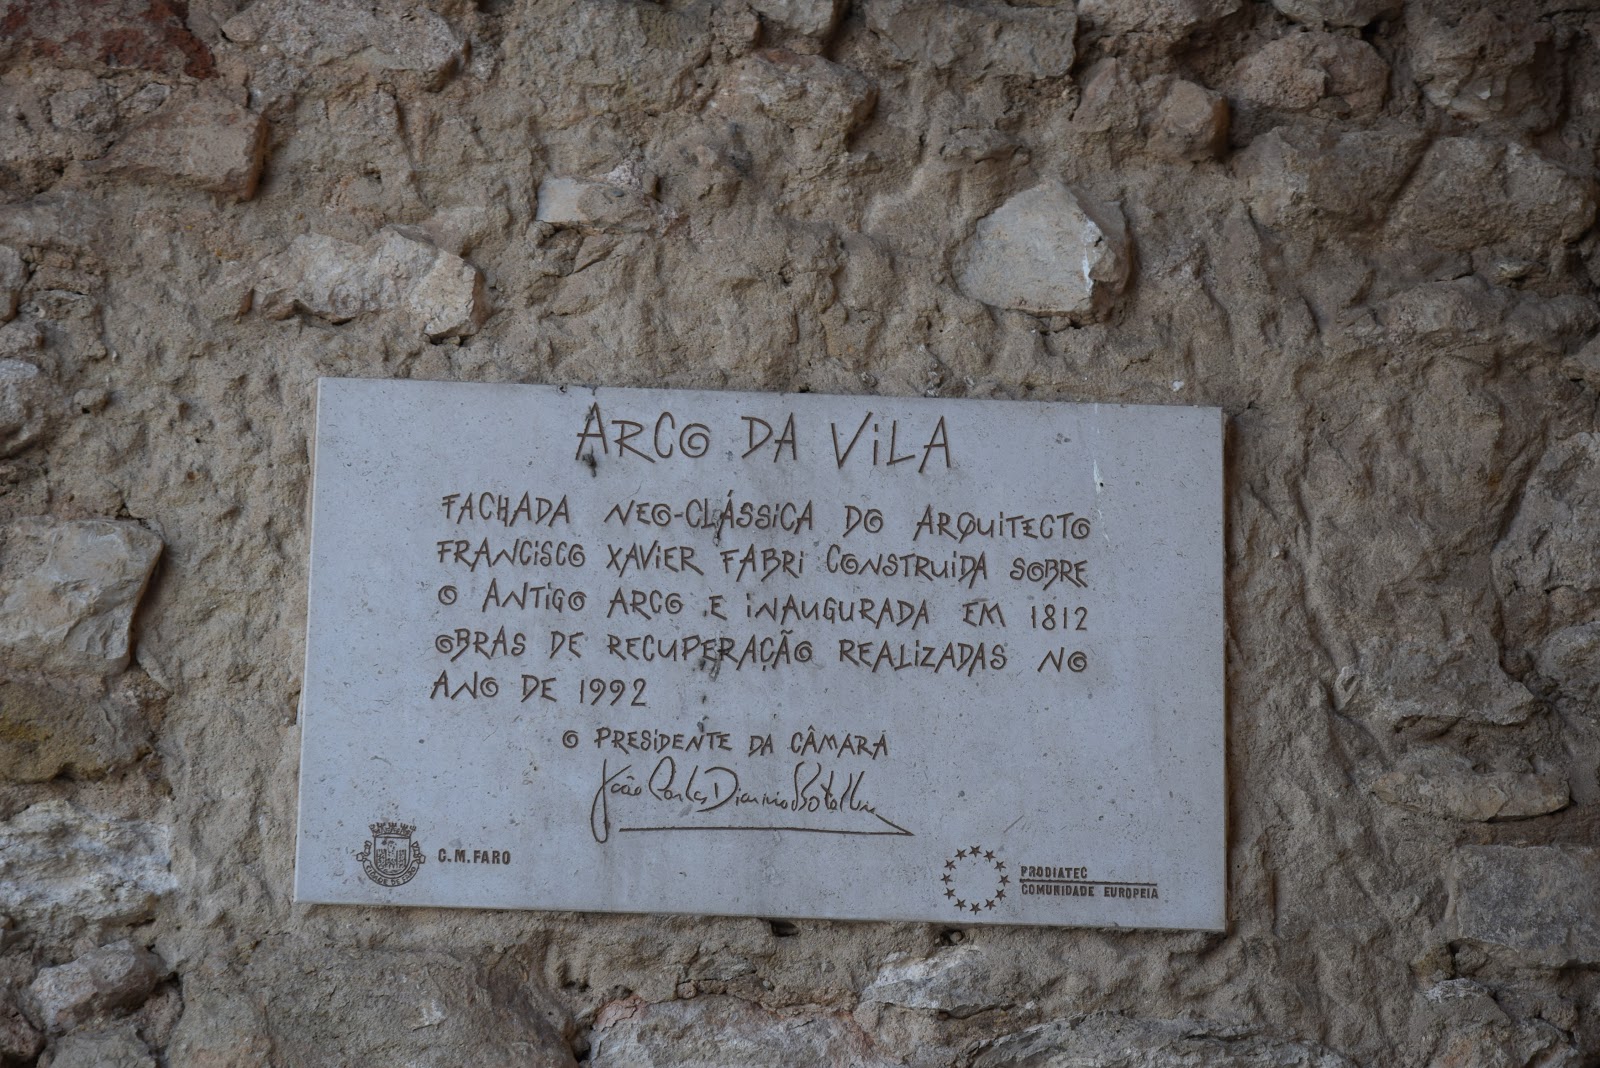 ARCO DA VILA
FACHADA NEO-CLÁSSICA DO ARQUITECTO
FRANCISCO XAVIER FABRI CONSTRUIDA SOBRE
O ANTIGO ARCO E INAUGURADA EM 1812
OBRAS DE RECUPERAÇÃO REALIZADAS NO
ANO DE 1992
O PRESIDENTE DA CÂMARA
João Carlos Dionísio Botelho
CIDADE DE FARO
C.M.FARO
PRODIATEC
COMUNIDADE EUROPEIA